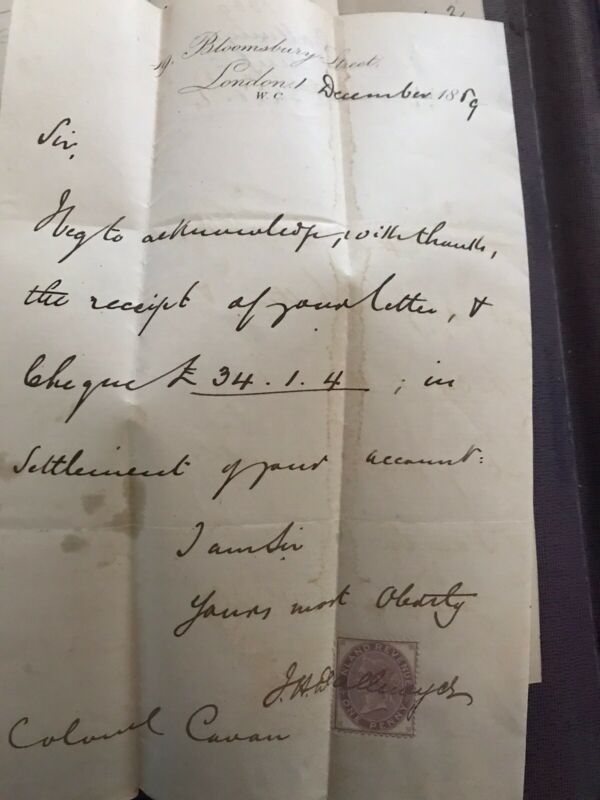 19. Bloomsbury Street.
London 1 December 1869
W.C.
Sir,
I beg to acknowledge, with thanks,
the receipt of your letter, &
Cheque £ 34.1.4 ; in
settlement of your account:
I am Sir
Yours most Obedtly
J.H. Dallmeyer
INLAND REVENUE
ONE PENNY
Colonel Cavan